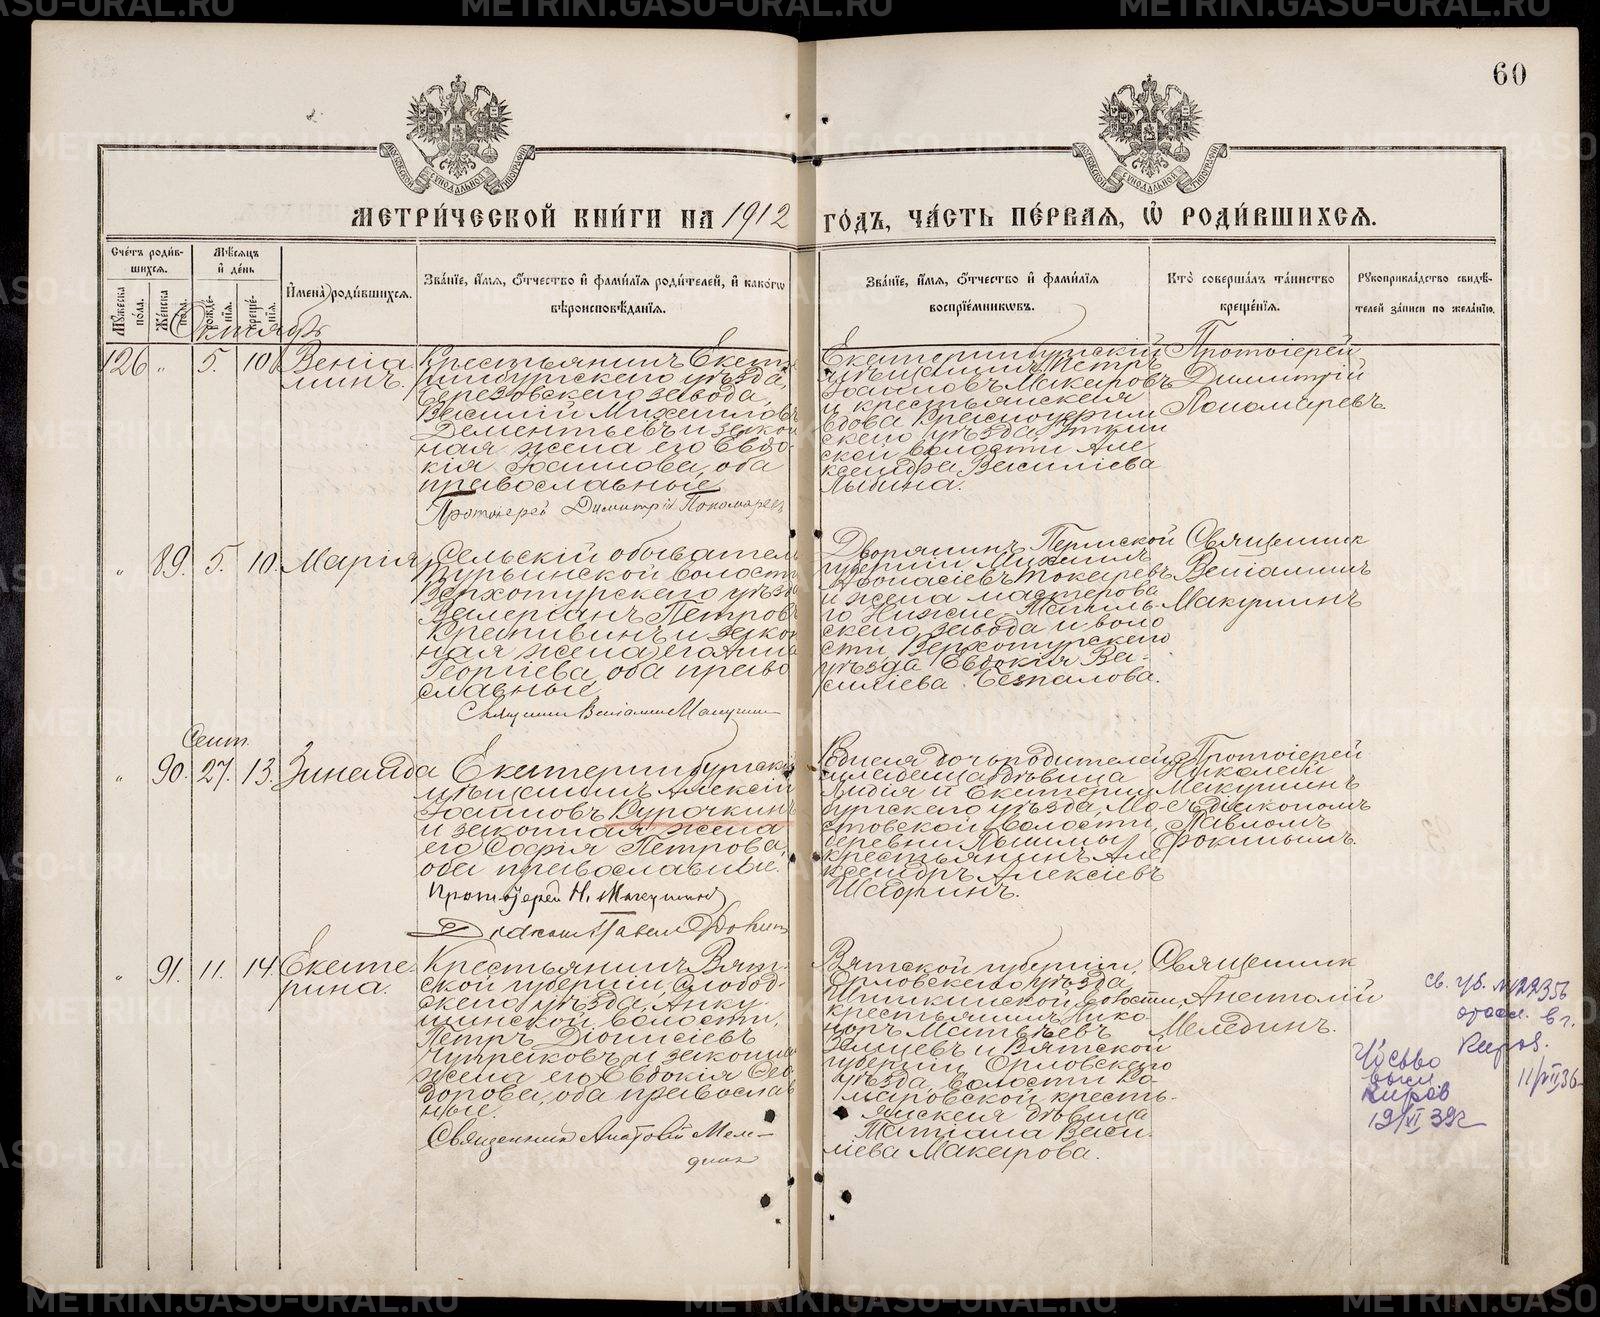 60
МЕТРИ́ЧЕСКОЙ КНИ́ГИ НА 1912 ГО́ДЪ, ЧА́СТЬ ПЕ́РВАЯ, Ѡ РОДИ́ВШИХСЯ.
Сче́тъ роди́в-
шихся.
Му́жеска по́ла.
Же́нска пол.
Мѣ́сяцъ
и де́нь
рожде́-
нія.
креще́-
нія.
И́мена роди́вшихся.
Зва́ніе, и́мя, о́тчество и фами́лія роди́телей, и како́гѡ
вѣроисповѣ́данія.
Зва́ніе, и́мя, о́тчество и фами́лія
воспріе́мниковъ.
Кто̀ соверша́лъ та́инство
креще́нія.
Рукоприкла́дство свидѣ́-
телей за́писи по жела́нію.
Октябрь
126 " 5. 10.
Веніа-
минъ.
Крестьянинъ Екате-
ринбургскаго уѣзда,
Березовскаго завода,
Василій Михаиловъ
Дементьевъ и закон
ная жена его Евдо-
кія Іоаннова, оба
православные
Протоіерей Димитрій Пономаревъ
Екатеринбургскій
мѣщанинъ Петръ
Іоанновъ Макаровъ
и крестьянская
вдова Красноуфим
скаго уѣзда, Уткин
ской волости Але
ксандра Василіева
Лыбина.
Протоіерей
Димитрій
Пономаревъ
" 89. 5. 10. Марія
Сельскій обывател
Турьинской волости
Верхотурскаго уѣзда
Валеріанъ Петровъ
Крапивинъ и закон
ная жена его Анна
Георгіева, оба право
славные
Священникъ Веніаминъ Макушинъ
Дворянинъ Пермской
губерніи Михаилъ
Афанасіевъ Токаревъ
и жена мастерова
го Нижне-Тагиль
скаго завода и воло
сти, Верхотурскаго
уѣзда Евдокія Ва-
силіева Безпалова.
Священник
Веніаминъ
Макушинъ
Сент.
" 90. 27. 13. Зинаида
Екатеринбургскій
мѣщанинъ Алексій
Іоанновъ Курочкинъ
и законная жена
его Софія Петрова,
оба православные.
Протоіерей Н. Макушинъ
Діаконъ Павелъ Фокинъ
дочь родителей
дѣвица
Лидія и Екатерин
бургскаго уѣзда, Мо-
стовской волости,
деревни
крестьянинъ Але
ксандръ Алексіевъ
Протоіерей
Николай
Макушинъ
съ діакономъ
Павломъ
Фокинымъ.
" 91. 11. 14.
Екате-
рина.
Крестьянинъ Вят-
ской губерніи, Слобод-
скаго уѣзда, Анку-
шинской волости,
Петръ Діонисіевъ
и законная
жена его Евдокія Ѳео
дорова, оба православ
ные.
Священникъ Анатолій Меле-
динъ
Вятской губерніи,
Орловскаго уѣзда,
волости,
крестьянинъ Нико-
норъ Матвѣевъ
Зайцевъ и Вятской
губерніи Орловскаго
уѣзда, волости Ко-
маровской кресть-
янская дѣвица
Татіана Васи-
ліева Макарова.
Священник
Анатолій
Мелединъ.
св. уб. №22356
в г.
Киров.
11/VII 36
выся
Киров
19/VI 39г